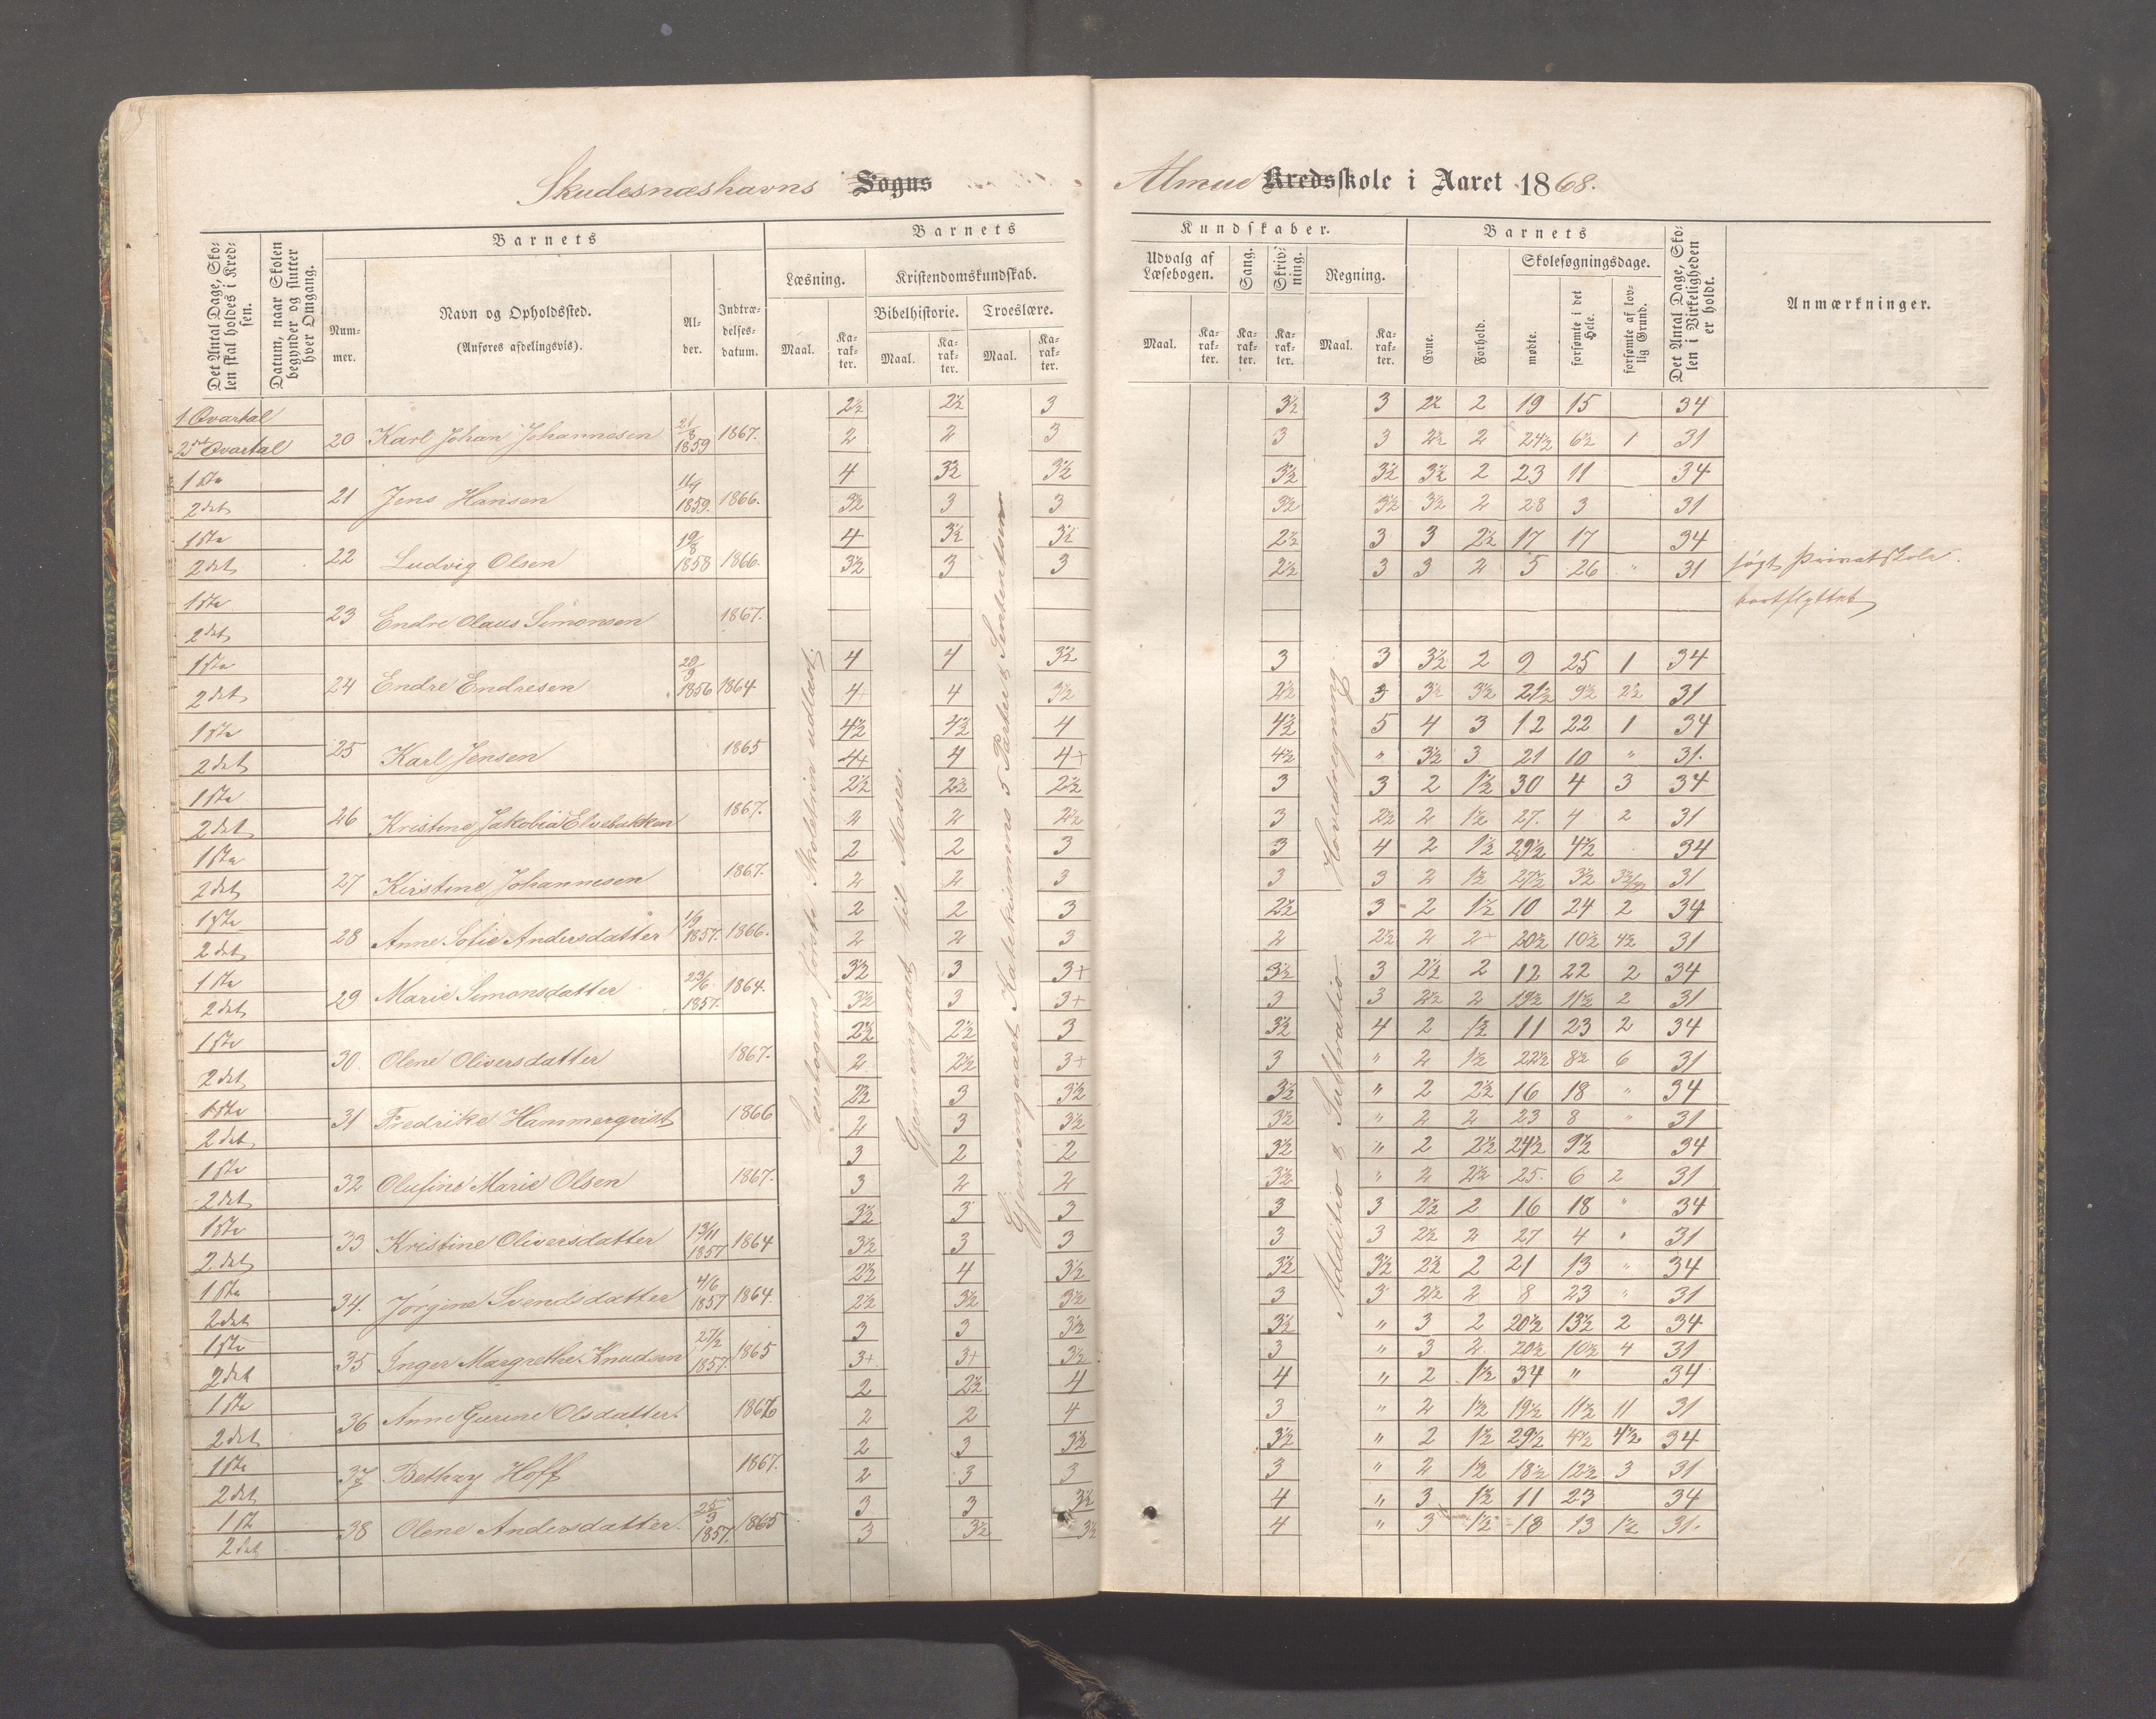 Skudesnæshavns Sogns
Almue Kredsskole i Aaret 1868.
Det Antal Dage, Skolen skal holdes i Kredsen.
Datum, naar Skolen begynder og slutter hver Omgang.
Barnets
Nummer.
Navn og Opholdssted.
(Anføres afdelingsvis).
Alder.
Indtrædelsesdatum.
Barnets
Læsning.
Maal.
Karakter.
Kristendomskundskab.
Bibelhistorie.
Maal.
Karakter.
Troeslære.
Maal.
Karakter.
Kundskaber.
Udvalg af Læsebogen.
Maal.
Karakter.
Sang.
Karakter.
Skrivning.
Karakter.
Regning.
Maal.
Karakter.
Barnets
Evne.
Forhold.
Skolesøgningsdage.
mødte.
forsømte i det Hele.
forsømte af lovlig Grund.
Det Antal Dage, Skolen i Virkeligheden er holdt.
Anmærkninger.
Læsebogens første Skoletrin udlæst.
Gjennemgaaet til Moses.
Gjennemgaaet Katekismens 5 Parter &
Additio & Subtratio.
Hovedregning.
1 Qvartal 2½ 2½ 3 3½ 3 2½ 2 19 15 34
2det Qvartal 20 Karl Johan Johannesen 21/8 1859 1867. 2 2 3 3 3 2½ 2 24½ 6½ 1 31
1ste 4 3½ 3½ 3½ 3½ 3½ 2 23 11 34
2det 21 Jens Hansen 11/9 1859. 1866. 3½ 3 3 3½ 3½ 3½ 2 28 3 31
1ste 4 3½ 3½ 2½ 3 3 2½ 17 17 34
2det 22 Ludvig Olsen 19/8 1858 1866. 3½ 3 3 2½ 3 3 2 5 26 " 31 søgt Privatskole.
1ste bortflyttet
2det 23 Endre Olaus Simonsen 1867.
1ste 4 4 3½ 3 3 3½ 2 9 25 1 34
2det 24 Endre Endresen 20/9 1856 1864 4+ 4 3½ 2½ 3 3½ 3½ 21½ 9½ 2½ 31
1ste 4½ 4½ 4 4½ 5 4 3 12 22 1 34
2det 25 Karl Jensen 1865 4+ 4 4+ 4½ " 3½ 3 21 10 " 31.
1ste 2½ 2½ 2½ 3 3 2 1½ 30 4 3 34
2det 26 Kristine Jakobia Elvebakken 1867. 2 2 2½ 3 2½ 2 1½ 27. 4 2 31
1ste 2 2 3 3 4 2 1½ 29½ 4½ 34
2det 27 Kirstine Johannesen 1867. 2 2 3 3 3 2 1½ 27½ 3½ 31
1ste 2 2 3 2½ 3 2 1½ 10 24 2 34
2det 28 Anne Sofie Andersdatter 1/9 1857. 1866. 2 2 3 2 2½ 2 2+ 20½ 10½ 4½ 31
1ste 3½ 3 3+ 3½ 3 2½ 2 12 22 2 34
2det 29 Marie Simonsdatter 23/6 1857. 1864. 3½ 3 3+ 3 3 2½ 2 19½ 11½ 2 31
1ste 2½ 2½ 3 3½ 4 2 1½ 11 23 2 34
2det 30 Olene Oliversdatter 1867. 2 2½ 3+ 3 " 2 1½ 22½ 8½ 6 31
1ste 2½ 3 3½ 3½ " 2 2½ 16 18 " 34
2det 31 Fredrike Hammerqvist 1866 2 3 3½ 3½ " 2 2 23 8 " 31
1ste 3 2 2 3½ " 2 2½ 24½ 9½ 34
2det 32 Olufine Marie Olsen 1867. 3 2 2 3½ " 2 2½ 25. 6 2 31
1ste 3½ 3 3 3 3 2½ 2 16 18 " 34
2det 33 Kristine Oliversdatter 13/11 1857 1864 3½ 3 3 3 3 2½ 2 27 4 " 31
1ste 2½ 4 3½ 3½ 3½ 2½ 2 21 13 " 34
2det 34. Jørgine Svendsdatter 4/6 1857 1864. 2½ 3½ 3½ 3 3 2½ 2 8 23 " 31
1ste 3 3 3½ 3½ " 3 2 20½ 13½ 2 34
2det 35 Inger Margrethe Knudsen 27/2 1857. 1865 3+. 3+ 3½ 3 " 3 2 20½ 10½ 4 31
1ste 2 2½ 4 4 " 2 1½ 34 " 34
2det 36 Anne Gurine Olsdatter. 1866 2 2 4 3 " 2 1½ 19½ 11½ 11 31
1ste 2 3 3½ 3½ " 2 1½ 29½ 4½ 4½ 34
2det 37 Bethzy Hoff 1867. 2 3 3 3 " 2 1½ 18½ 12½ 3 31
1st 3 3 3½ 4 " 3 1½ 11 23 34
2det 38 Olene Andersdatter. 25/3 1857. 1865 3 3½ 3½ 4 " 3 1½ 18 13 1½ 31.